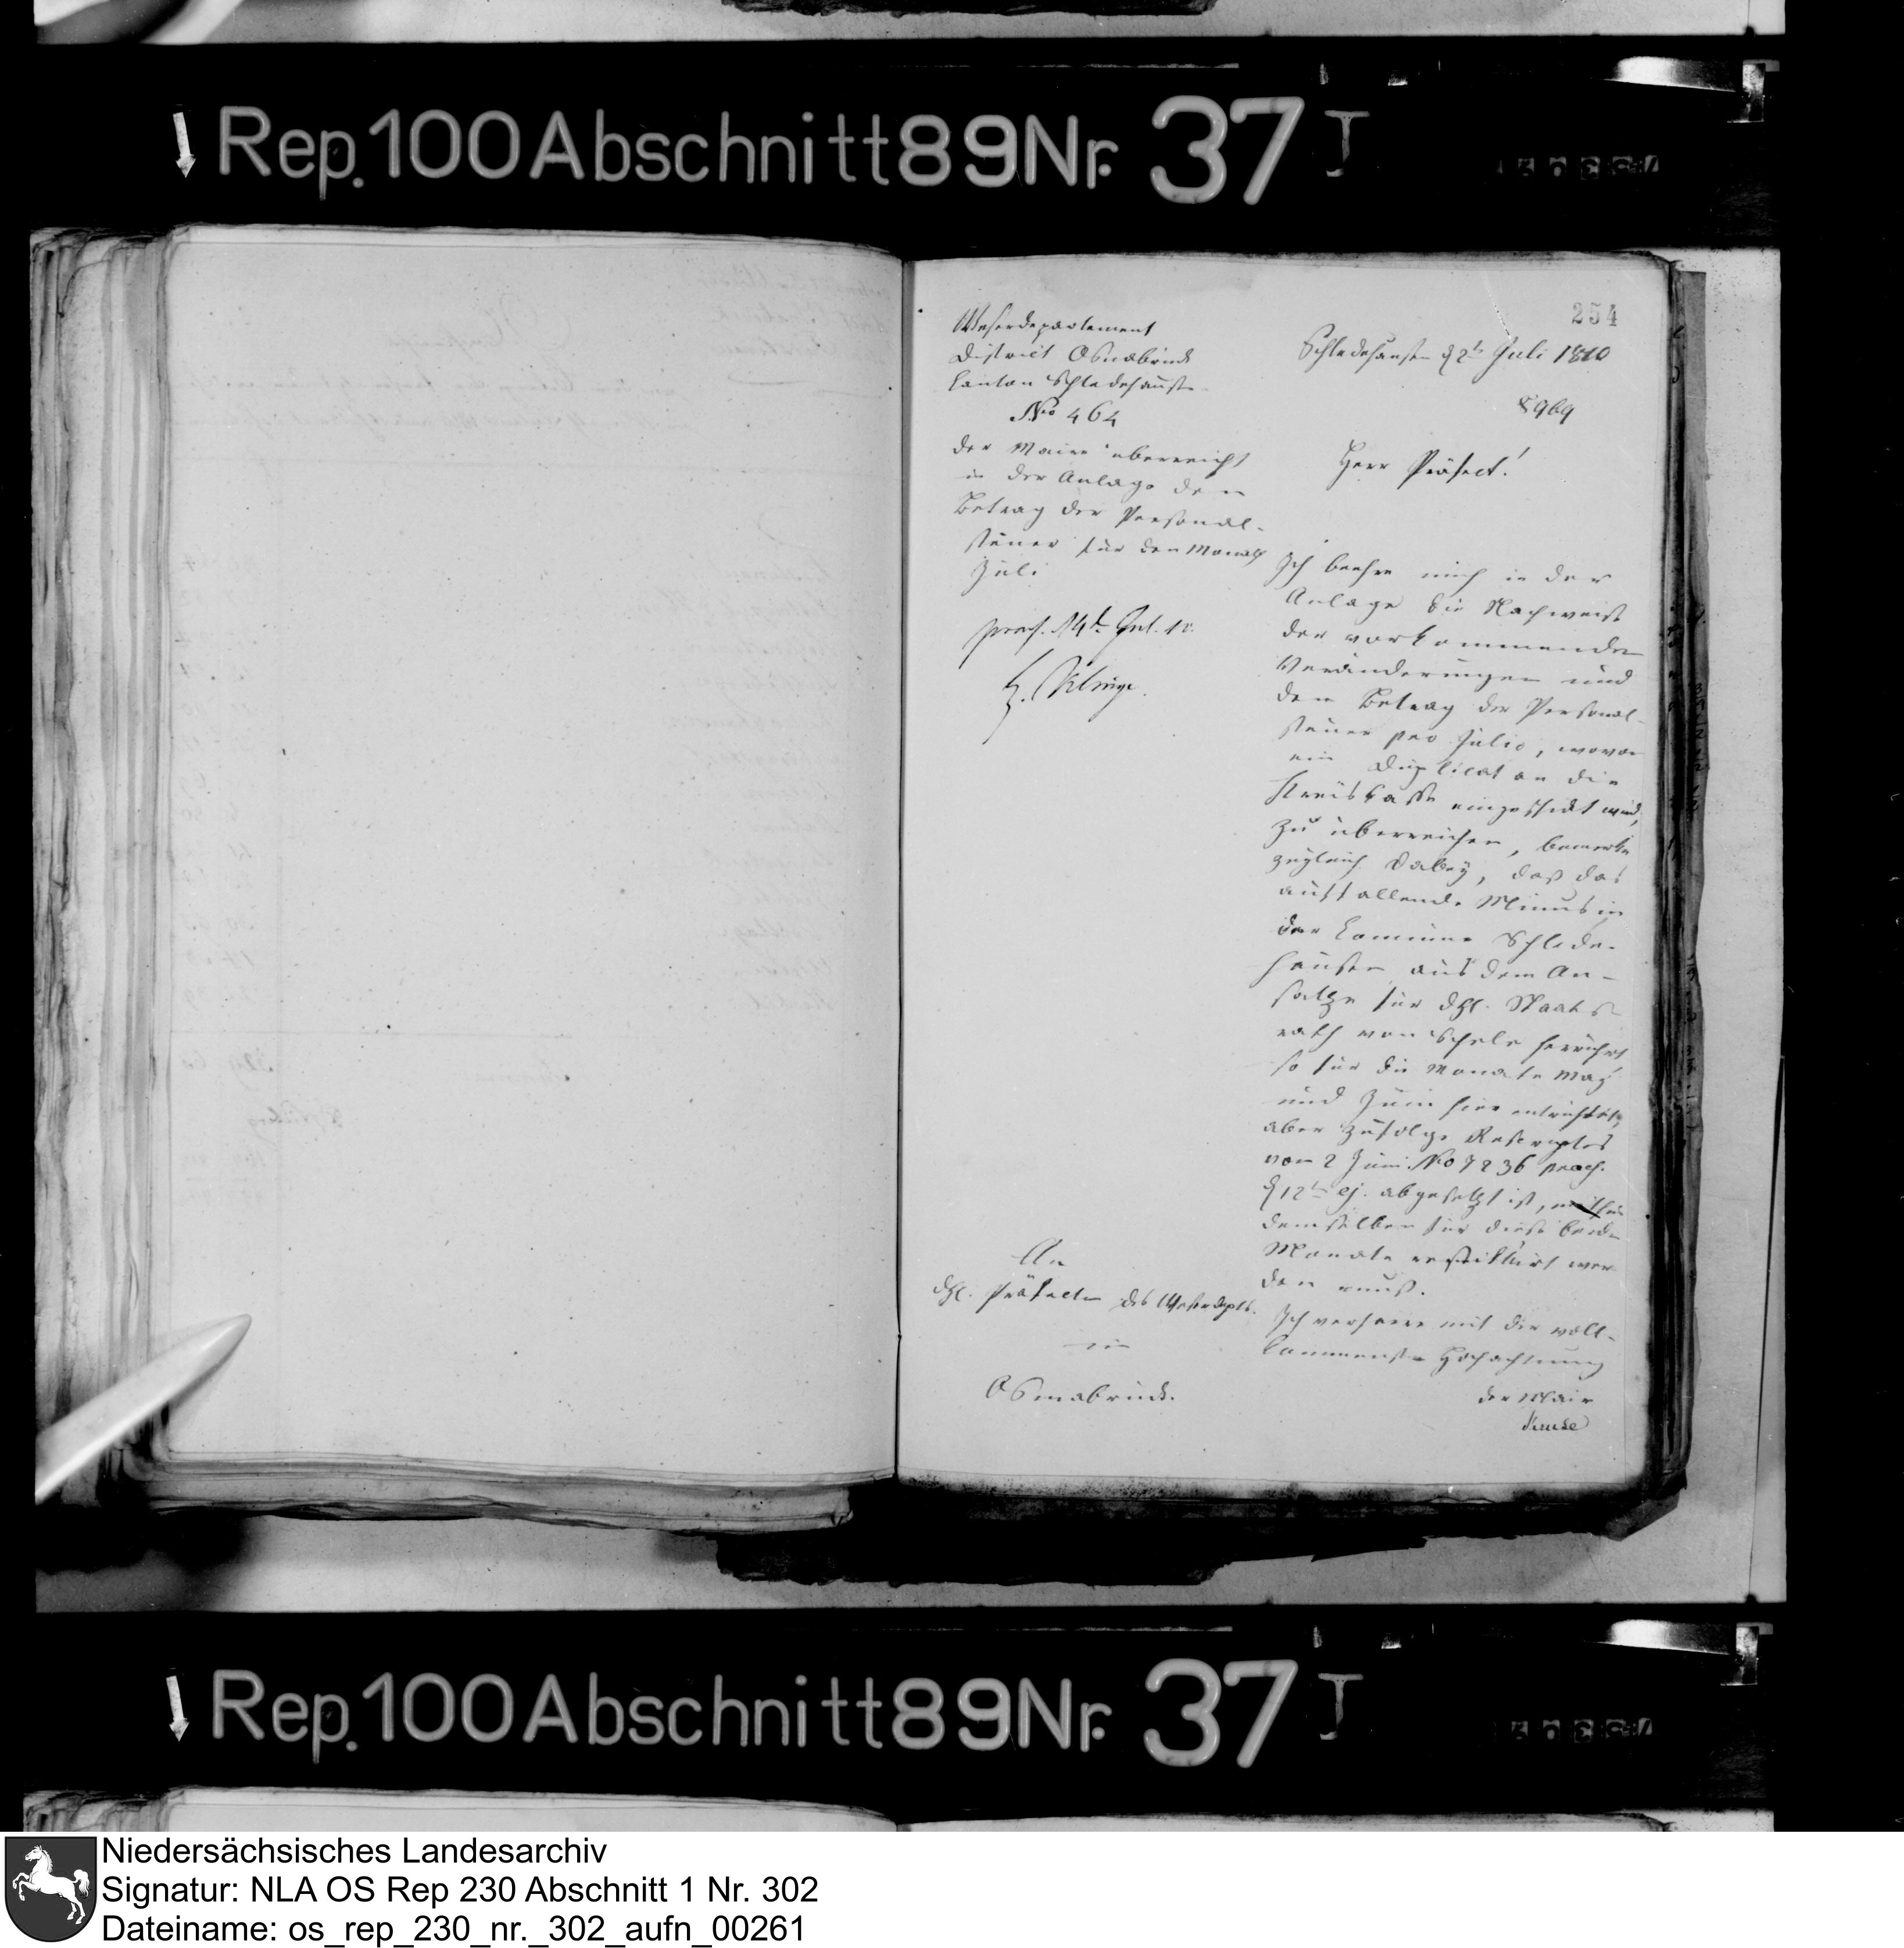 Rep. 100 Abschnitt 89 Nr. 37 I
254
Weserdepartement
District Osnabrück
Canton Schledehausen
No 464
Der Maire überreicht
in der Anlage den
Betrag der Personal-
steuer für den Monath
Juli
praes. 14t. Jul. 10.
Schledehausen d 2t Juli 1810
8969
Herr Präfect!
Ich beehre mich in der
Anlage die Nachweise
der vorkommenden
Veränderungen und
den Betrag der Personal-
steuer pro Julio, wovon
ein Duplicat an die
Kreiskasse eingeschickt wird,
zu überreichen, bemerke
zugleich dabey, daß das
auffallende Minus in
der Commune Schlede-
hausen aus dem An-
satze für dHl. Staats-
rath von Schele herrührt
so für die Monate May
und Juin hier entrichtet,
aber zufolge Rescriptes
vom 2 Juni No 7236 praes.
d 12t ej. abgesetzt ist,
demselben für diese beide
Monate restituirt wer-
den muß.
Ich verharre mit der voll-
kommensten Hochachtung
der Maire
Kruse
An
dHl. Präfecten des Weserdepts.
in
Osnabrück.
Rep. 100 Abschnitt 89 Nr. 37 I
Niedersächsisches Landesarchiv
Signatur: NLA OS Rep 230 Abschnitt 1 Nr. 302
Dateiname: os_rep_230_nr._302_aufn_00261